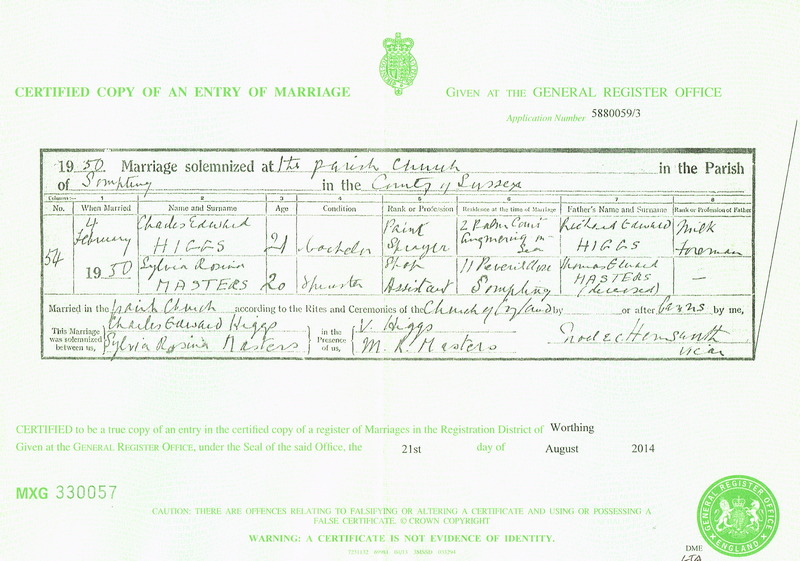 CERTIFIED COPY OF AN ENTRY OF MARRIAGE
GIVEN AT THE GENERAL REGISTER OFFICE
Application Number 5880059/3
1950. Marriage solemnized at the parish Church in the Parish
of Sompting in the County of Sussex
Columns:— 1 2 3 4 5 6 7 8
No. When Married Name and Surname Age Condition Rank or Profession Residence at the time of Marriage Father's Name and Surname Rank or Profession of Father
54 4 February 1950
Charles Edward HIGGS 21 bachelor Paint Sprayer 2 Palm Court Angmering on Sea Richard Edward HIGGS Milk Foreman
Sylvia Rosina MASTERS 20 Spinster Shop Assistant 11 Peveril Close Sompting Thomas Edward MASTERS (deceased) —
Married in the parish Church according to the Rites and Ceremonies of the Church of England by or after banns by me,
This Marriage was solemnized between us, Charles Edward Higgs Sylvia Rosina Masters in the Presence of us, V. Higgs M. R. Masters
Vicar
CERTIFIED to be a true copy of an entry in the certified copy of a register of Marriages in the Registration District of Worthing
Given at the GENERAL REGISTER OFFICE, under the Seal of the said Office, the 21st day of August 2014
MXG 330057
CAUTION: THERE ARE OFFENCES RELATING TO FALSIFYING OR ALTERING A CERTIFICATE AND USING OR POSSESSING A
FALSE CERTIFICATE. © CROWN COPYRIGHT
WARNING: A CERTIFICATE IS NOT EVIDENCE OF IDENTITY.
GENERAL REGISTER OFFICE
ENGLAND
DME